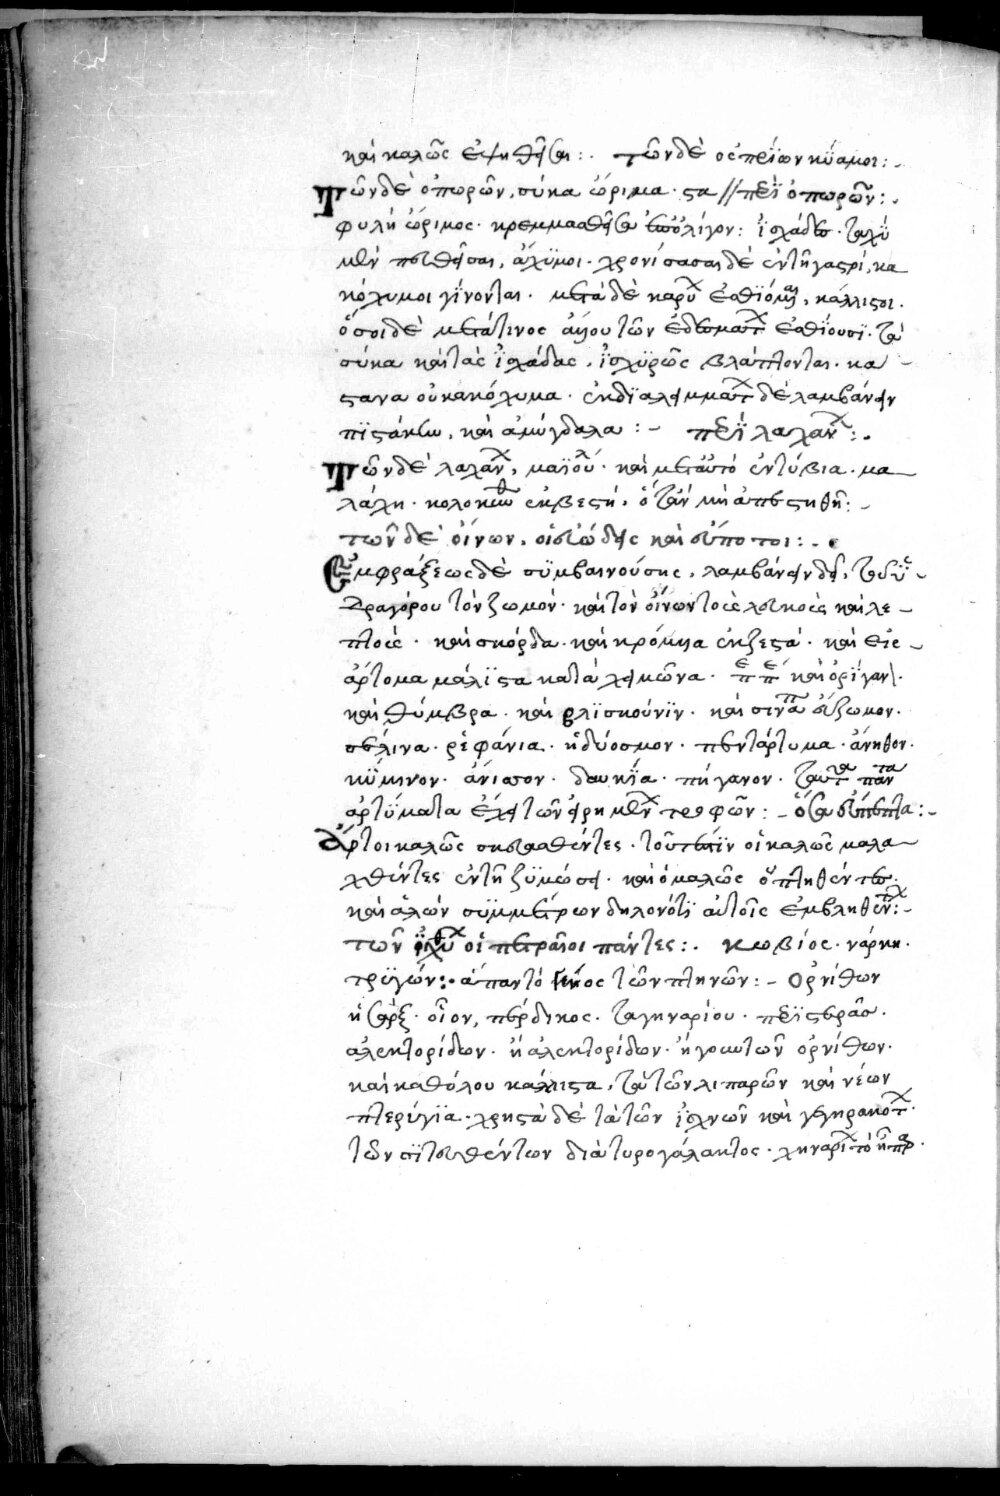 καὶ καλῶς ἑψηθῆναι :. τῶν δὲ ὀσπρίων κύαμοι :.
Τῶν δὲ ὀπωρῶν, σύκα ὥριμα · στα // περὶ ὀπωρῶν :.
φυλὴ ὥριμος · κρεμμασθεῖσα ὀλίγον : ἰσχάδες · ταχὺ
μὲν πεφθῆσαι, ἄχυμοι · χρονίσασαι δὲ ἐν τῇ γαστρί, κα
κόχυμοι γίνονται · μετὰ δὲ καρύ ἐσθιόμ, κάλλισοι ·
ὅσοι δὲ μετά τινος ἄλλου τῶν ἐδεσματ ἐσθίουσι · τὰ
σύκα καὶ τὰς ἰσχάδας, ἰσχυρῶς βλάπτονται · κα
στανα οὐ κακόχυμα · ἐν διαλήμματ δὲ λαμβάνειν
πιστάκια, καὶ ἀμύγδαλα :- περὶ λαχαν :.
Τῶν δὲ λαχαν, μαϊού · καὶ μετ αὐτό ἐντύβια · μα
λάχη · κολοκυθ ἐκβεστή, ὅταν μὴ ἀπεστηθῆ :-
τῶν δὲ οἴνων, οἱ εὐώδεις καὶ εὔποτοι :.
Ἐμφράξεως δὲ συμβαινούσης, λαμβάνειν δεῖ,
δραγόρου τὸν ζωμόν · καὶ τὸν οἴνων τοὺς λευκοὺς καὶ λε
πτούς · καὶ σκόρδα · καὶ κρόμμυα ἐκζεστά · καὶ εἰς
ἄρτομα μάλιστα κατὰ χειμῶνα · καὶ ὀρίγαν ·
καὶ θύμβρα · καὶ βλισκούνιν · καὶ σινάπ εὔζωμον ·
σέλινα · ῥεφάνια · ἡδύοσμον · πενταρτυμα · ἄνηθον ·
κύμινον · ἄνισον · δαυκία · πήγανον · ταῦτα πάντα
ἀρτύματα ἔχει τῶν εἰρημέν τροφῶν :- ὅσα εὔπεπτα :-
Ἄρτοι καλῶς σκευασθέντες · τουτέστιν οἱ καλῶς μαλα
χθέντες ἐν τῇ ζυμώσει · καὶ ὁμαλῶς ὀπτηθέντες ·
καὶ ἁλῶν συμμέτρων δηλονότι αὐτοῖς ἐμβληθέντ :-
τῶν ἰχθύ οἱ πετραῖοι πάντες :. κωβίος · νάρκη ·
τρυγών :· ἅπαν τὸ γένος τῶν πτηνῶν :- Ὀρνίθων
ἡ σάρξ · οἷον, πέρδικος · ταγηναρίου · περιστερᾶς ·
ἀλεκτορίδων · ἢ ἀλεκτορίδων · ἢ τῶν ὀρνίθων ·
καὶ καθόλου κάλλιστα, τὰ τῶν λιπαρῶν καὶ νέων
πτερύγια · χρηστὰ δὲ τὰ τῶν ἰσχνῶν καὶ γεγηρακότ ·
τῶν σιτευθέντων διὰ τυρογάλακτος · χηναρί τὸ ἧπαρ ·